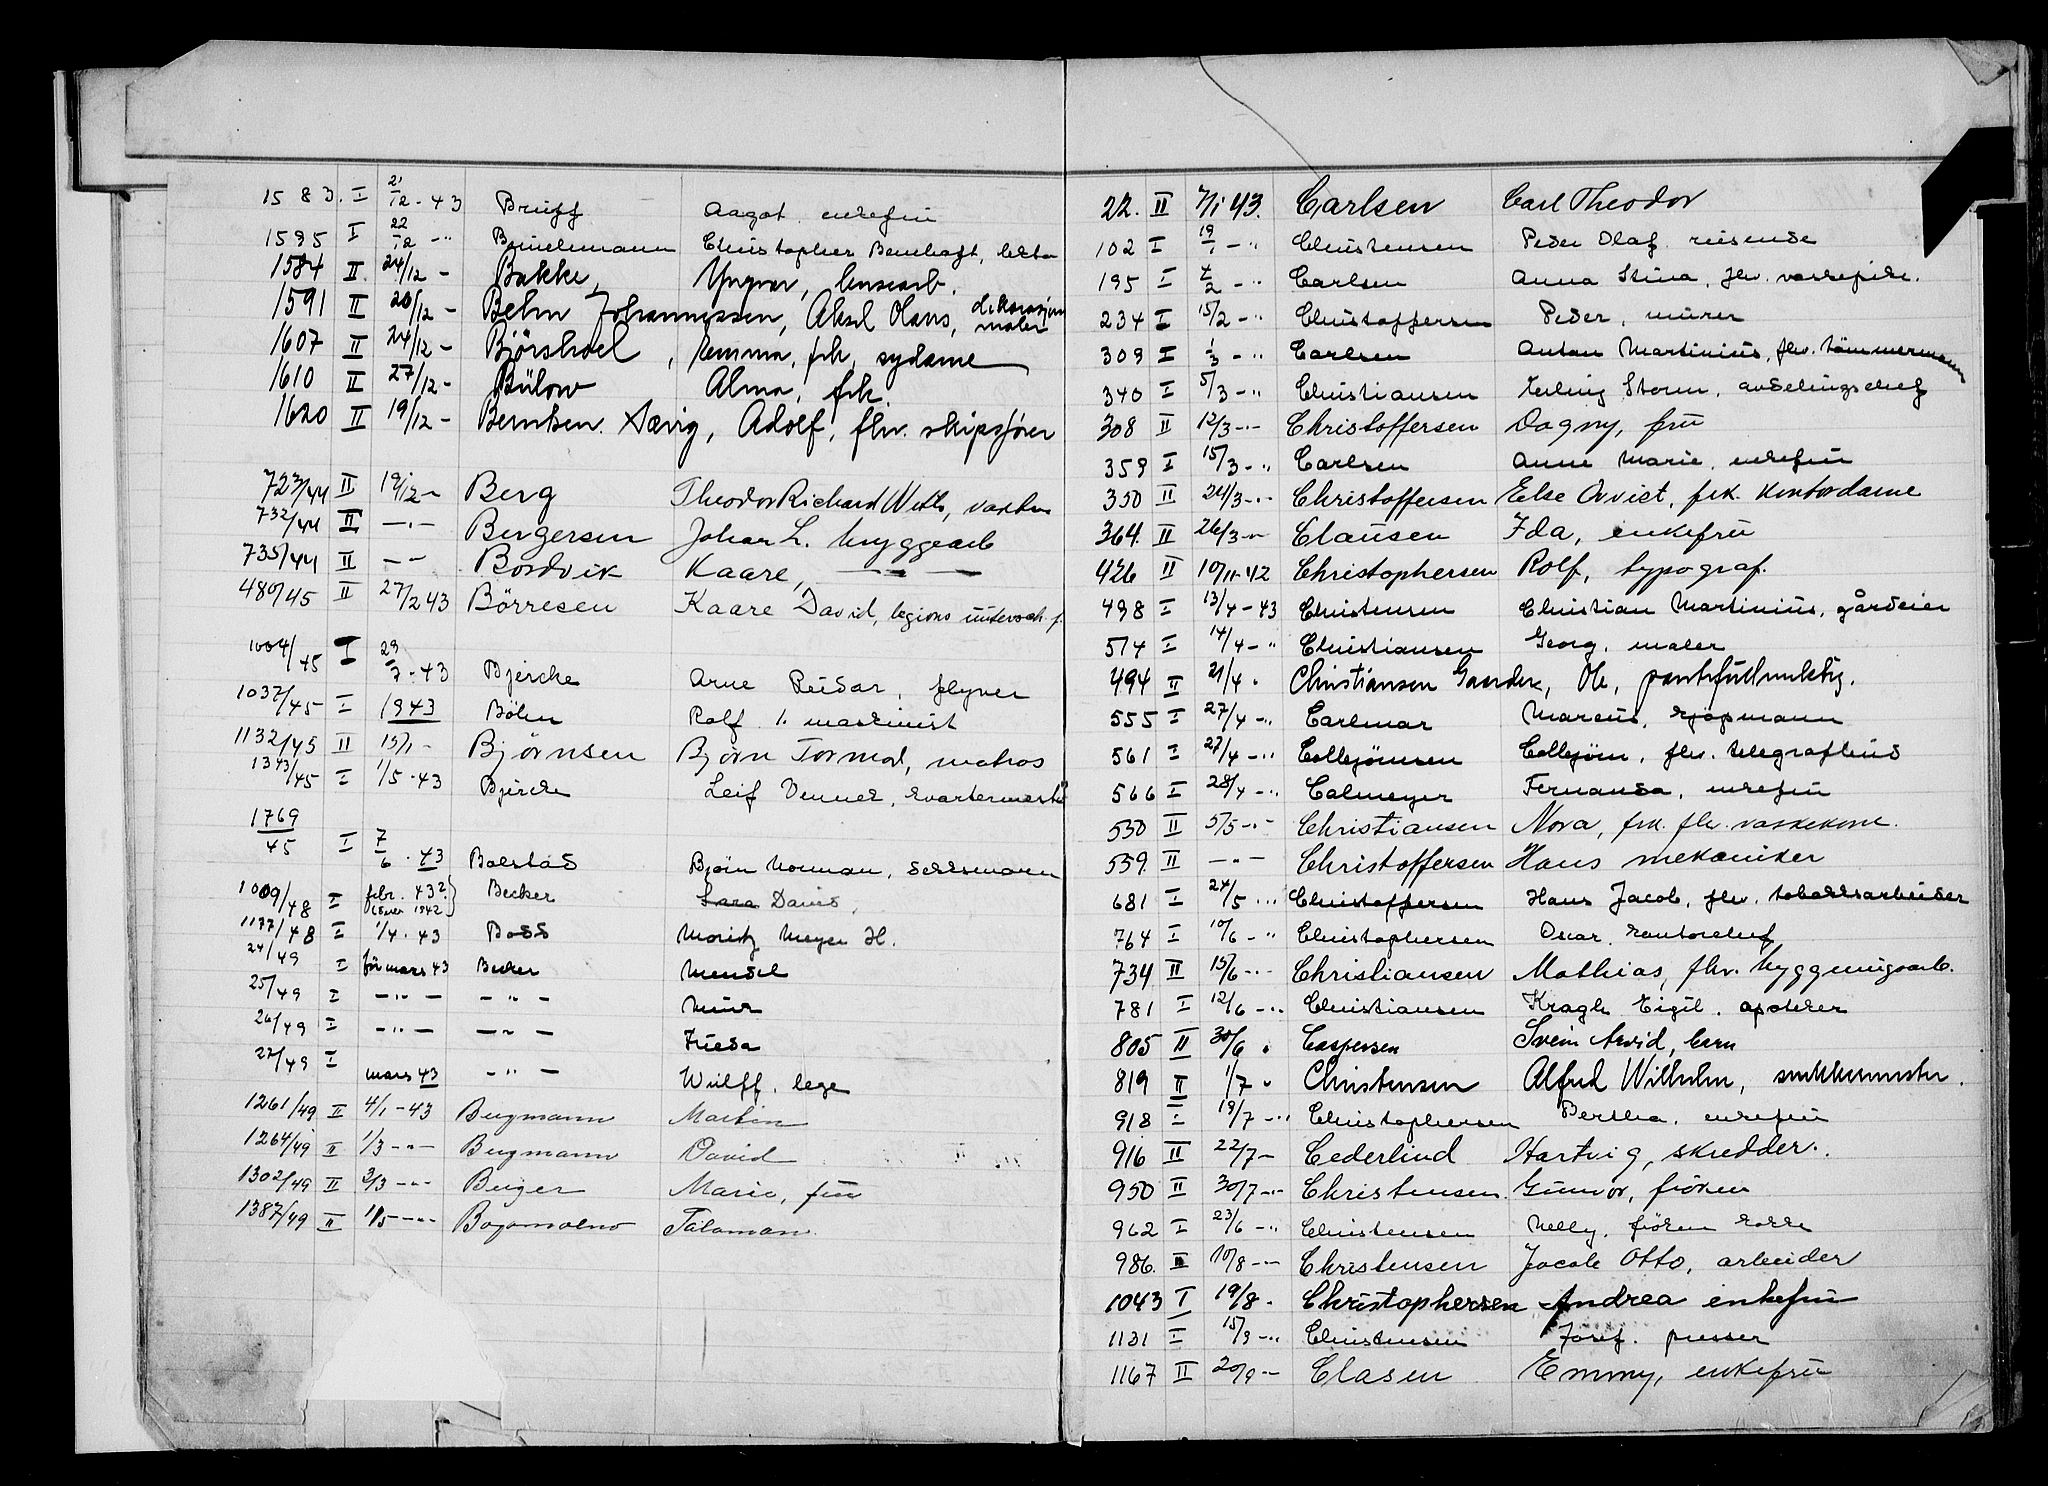 1583. I 21/12-43 Bruff Aagot. enkefru
1595 I 22/12 -"- Christopher lektor
1584 II 24/12 - Bakke, Yngvar,
1591 II 20/12 - Behn Johannessen, Aksel Olaus, dekorasjons maler
1607 II 24/12 - Bjørshoel, Emma, frk, sydame
1610 II 27/12 - Bülow Alma, frk.
1620 II 19/12 - Berntsen Særig, Adolf, fhv. skipsfører
723/44 II 19/12 - Berg Theodor Richard
732/44 II -"- Bergersen Johan L. byggearb
735/44 II -"- Bordvik Kaare, — —
480/45 II 27/2 43 Börresen Kaare David, legions
1004/45 I 29/7-43 Bjercke Arne Reidar, flyver
1037/45 I 1943 Böhn Rolf 1. maskinist
1132/45 II 15/1 - Björnsen Björn Tormod, matros
1343/45 I 1/5-43 Bjercke Leif kvartermester
1769/45 I 7/6.43 Bolstad Björn Norman, dekksmann
1009/48 I febr. 43? 1942 Becker Lara David,
1177/48 I 1/4.43 Bodd Moritz Meyer H.
24/49 I før mars 43 Becker Mendel
25/49 I -"- -"-
26/49 I -"- -"- Frieda
27/49 I mars 43 -"- Wulff. lege
1261/49 II 4/1-43 Bergmann Martin
1264/49 II 1/3 -"- Bergmann David
1302/49 II 2/3 -"- Marie, fru
1387/49 II 1/5 -"- Bogomolno Talaman
22. II 7/1 43. Carlsen Carl Theodor
102 I 19/1 -" Christensen Peder Olaf. reisende
195 I 2/2 -" Carlsen Anna Stina, fhv. vaskepike.
234 I 15/2 -" Christoffersen Peder, murer
309 I 1/3 -" Carlsen Anton Martinius, fhv. tömmermann
340 I 5/3 -" Christiansen Erling Storm, avdelingschef
308 II 12/3 -" Christoffersen Dagny, fru
359 I 15/3 -" Carlsen Anne Marie, enkefru
350 II 24/3 -" Christoffersen Else frk. kontordame
364. II 26/3 -" Clausen Ida, enkefru
426 II 10/11-42 Christophersen Rolf, typograf.
498 I 13/4-43 Christensen Christian Martinius, gårdeier
514 I 14/4 -" Christiansen Georg. maler
494 II 21/4 " Christiansen Gaarder, Ole,
555 I 27/4 -" Carlmar Marcus, kjöpmann
561 I 27/4 -" Collbjörnsen Collbjörn, fhv. telegrafbud
566 I 28/4 -" Calmeyer Fernanda, enkefru
530 II 5/5 -" Christiansen Nora, frk. fhv. vaskekone.
539. II -"- Christoffersen Hans mekaniker
681 I 24/5 -" Christoffersen Hans Jacob, fhv. tobakksarbeider
764 I 10/6 -" Christophersen Oscar, kontorchef
734 II 15/6 -" Christiansen Mathias, fhv. bygningsarb.
781 I 12/6 -" Christiansen Kragh Eigil. apoteker
805 II 30/6 " Caspersen Svein Arvid, barn
819 II 1/7 " Christensen Alfred Wilhelm, snekkermester.
918 I 19/7 -" Christophersen Bertha. enkefru
916 II 22/7 - Cederlind Hartvig, skredder.
950 II 30/7 -" Christensen. Gunvor, fröken
962 I 23/6 -" Christensen Nelly, fröken kokke
986. II 10/8 -" Christensen Jacob Otto, arbeider
1043 I 19/8 " Christophersen Andrea enkefru
1131 I 15/9 -" Christensen Josef. presser
1167 II 20/9 -" Clasen Emmy, enkefru